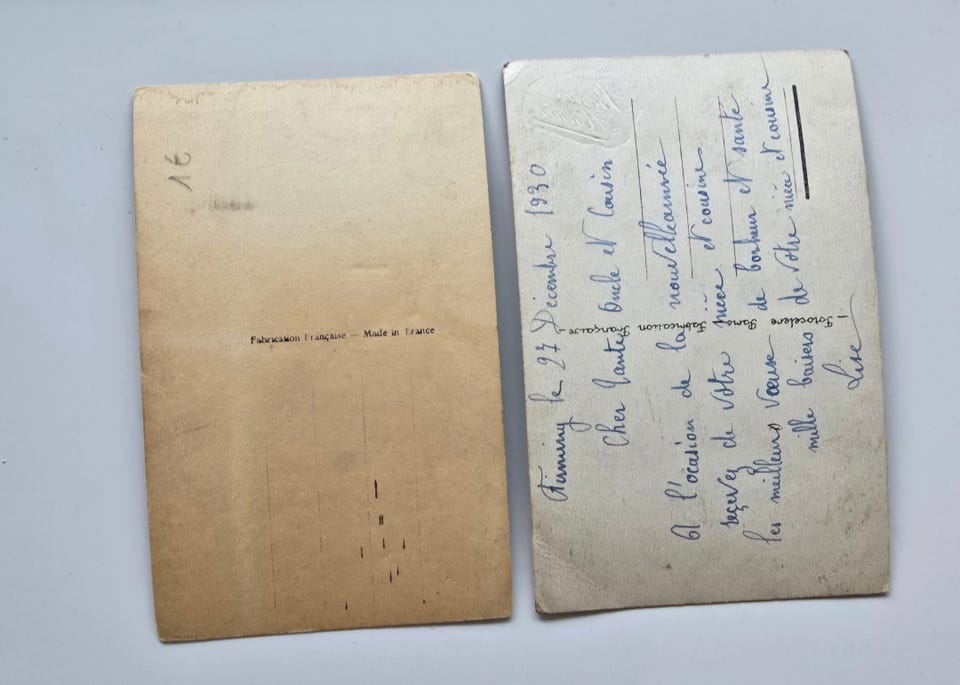 1€
Fabrication Française — Made in France
le 27 Décembre 1930
Cher Tante Oncle et Cousin
A l'ocasion de la nouvellannée
reçevez de votre nièce et cousine
les meilleurs vœuse de bonheur et santé
mille baisers de votre nièce et cousine
Lise
Fabrication Française